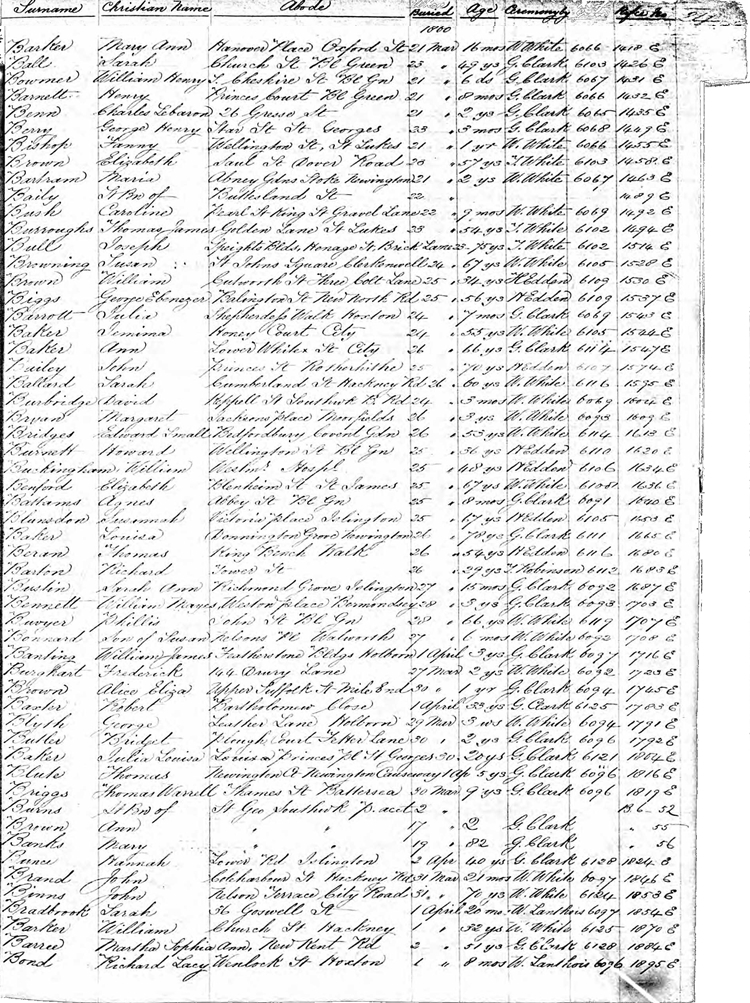 Surname Christian Name Abode Buried Age Ceremony
Barker Mary Ann Hanover Place Oxford St 21 Mar 16 mos W. White 6066 1418 E
Ball Sarah Church St Bl Green 23 " 49 ys G. Clark 6103 1426 E
Bowmer William Henry Cheshire St Bl Gn 21 " 6 ds G. Clark 6067 1431 E
Barnett Henry Princes Court Bl Green 21 " 8 mos G. Clark 6066 1432 E
Benn Charles Lebaron 26 St 21 " 2 ys G. Clark 6065 1435 E
Berry George Henry Star St St Georges 23 " 3 mos G. Clark 6068 1449 E
Bishop Fanny Wellington St, St Lukes 21 " 1 yr W. White 6066 1455 E
Brown Elizabeth Saul St Dover Road 20 " 57 ys White 6103 1458 E
Bartram Maria Abney Gdns Stoke Newington 21 " 2 ys W. White 6067 1463 E
Baily St Bn of Buttesland St 22 " 1489 E
Bush Caroline Pearl St King St Gravel Lane 22 " 9 mos W. White 6069 1492 E
Burroughs Thomas James Golden Lane St Lukes 23 " 54 ys White 6102 1494 E
Bull Joseph Speights Blds, St, Brick Lane 23 " 75 ys White 6102 1514 E
Browning Susan St Johns Square Clerkenwell 24 " 67 ys W. White 6105 1528 E
Brown William Culworth St Three Colt Lane 25 " 34 ys H Eddon 6109 1530 E
Biggs George Ebenezer St New North Rd 25 " 56 ys H Eddon 6109 1537 E
Barrott Julia Shepherdess Walk Hoxton 24 " 7 mos G. Clark 6069 1543 E
Baker Jemima Honey Court City 24 " 55 ys W. White 6105 1544 E
Baker Ann Lower Whitex St City 26 " 66 ys G. Clark 6114 1547 E
Bailey John Princes St Rotherhithe 25 " 70 ys H Eddon 6107 1574 E
Ballard Sarah Cumberland St Hackney Rd 26 " 60 ys W. White 6116 1595 E
Burbridge David St Southwk B. Rd 24 " 3 mos W. White 6069 1604 E
Bryan Margaret Jacksons place Moorfields 26 " 3 ys W. White 6093 1609 E
Bridges Edward Small Bedfordbury Covent Gdn 26 " 53 ys W. White 6114 1613 E
Burnett Howard Wellington St Bl Gn 25 " 36 ys H Eddon 6110 1620 E
Buckingham William Westmr Hospl 25 " 48 ys H Eddon 6106 1634 E
Benford Elizabeth Blenheim St St James 25 " 67 ys W. White 6105 1636 E
Battams Agnes Abbey St Bl Gn 25 " 8 mos G. Clark 6091 1640 E
Blansdon Susannah Victoria place Islington 25 " 67 ys H Eddon 6105 1653 E
Baker Louisa Donnington Grove Newington 26 " 78 ys G. Clark 6111 1665 E
Beran Thomas King Bench Walk 26 " 54 ys H Eddon 6116 1680 E
Barton Richard Tower St 26 " 29 ys Robinson 6112 1683 E
Bustin Sarah Ann Richmond Grove Islington 27 " 15 mos G. Clark 6092 1687 E
Bennett William Mayes Weston place Bermondsey 28 " 3 ys G. Clark 6093 1703 E
Bwyer Phillis John St Bl Gn 28 " 66 ys W. White 6119 1707 E
Bonnard Son of Susan Nelsons Pl Walworth 27 " 6 mos W. White 6092 1708 E
Banting William James Featherstone Bldgs Holborn 1 April 3 ys G. Clark 6097 1716 E
Burghart Frederick 144 Drury Lane 27 Mar 2 ys W. White 6092 1723 E
Brown Alice Eliza Upper Suffolk St Mile End 30 " 1 yr G. Clark 6094 1745 E
Baxter Robert Bartholomew Close 1 April 33 ys G. Clark 6125 1783 E
Blyth George Leather Lane Holborn 29 Mar 3 ws W. White 6094 1791 E
Butler Bridget Plough Court Fetter Lane 30 " 2 ys G. Clark 6096 1792 E
Baker Julia Louisa Louisa Princes Pl St Georges 30 " 20 ys G. Clark 6121 1804 E
Blute Thomas Newington Ct Newington Causeway 1 Ap 5 ys G. Clark 6096 1816 E
Briggs Thomas Worrell Thames St Battersea 30 Mar 9 ys G. Clark 6096 1819 E
Burns St Bn of St Geo Southwk p acct 2 " 136 - 52
Brown Ann " " " 17 " 2 G. Clark " 55
Banks Mary " " " 19 " 82 G. Clark " 56
Bance Hannah Lower Rd Islington 2 Apr 40 ys G. Clark 6128 1824 E
Brand John Colharbour St Hackney Rd 31 Mar 21 mos W. White 6097 1846 E
Binns John Nelson Terrace City Road 31 " 70 ys W. White 6124 1853 E
Bradbrook Sarah 36 Goswell St 1 April 20 mo W. Lanthois 6097 1854 E
Barker William Church St Hackney 1 " 32 ys W. White 6125 1870 E
Barree Martha Sophia Ann, New Kent Rd 2 " 51 ys G. Clark 6128 1884 E
Bond Richard Lacy Wenlock St Hoxton 1 " 8 mos W. Lanthois 6096 1895 E